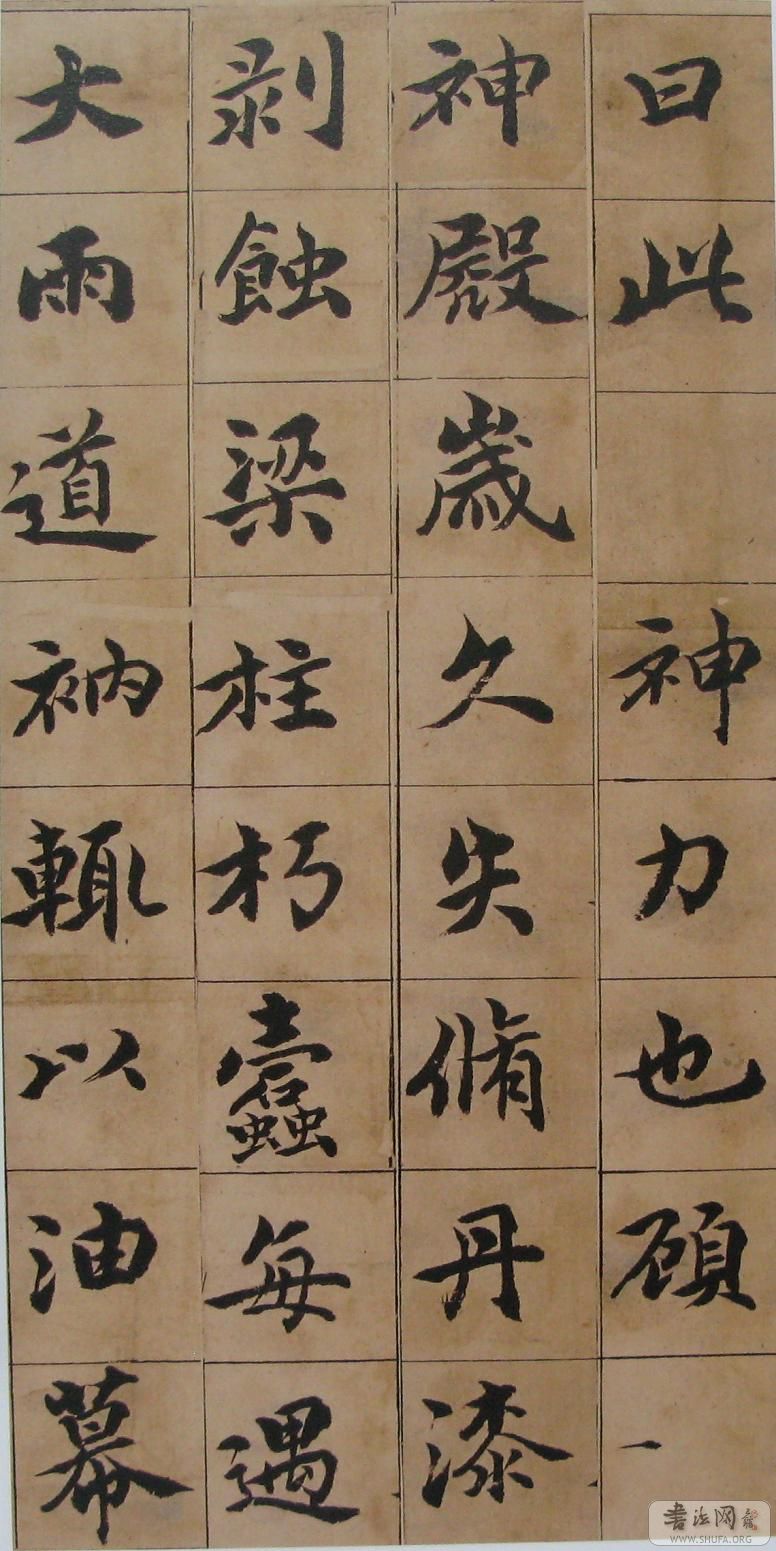 曰此 神力也頋一
神殿歲久失脩丹漆
剥蝕梁柱朽蠹每遇
大雨道衲輒以油幕
書法网
WWW.SHUFA.ORG